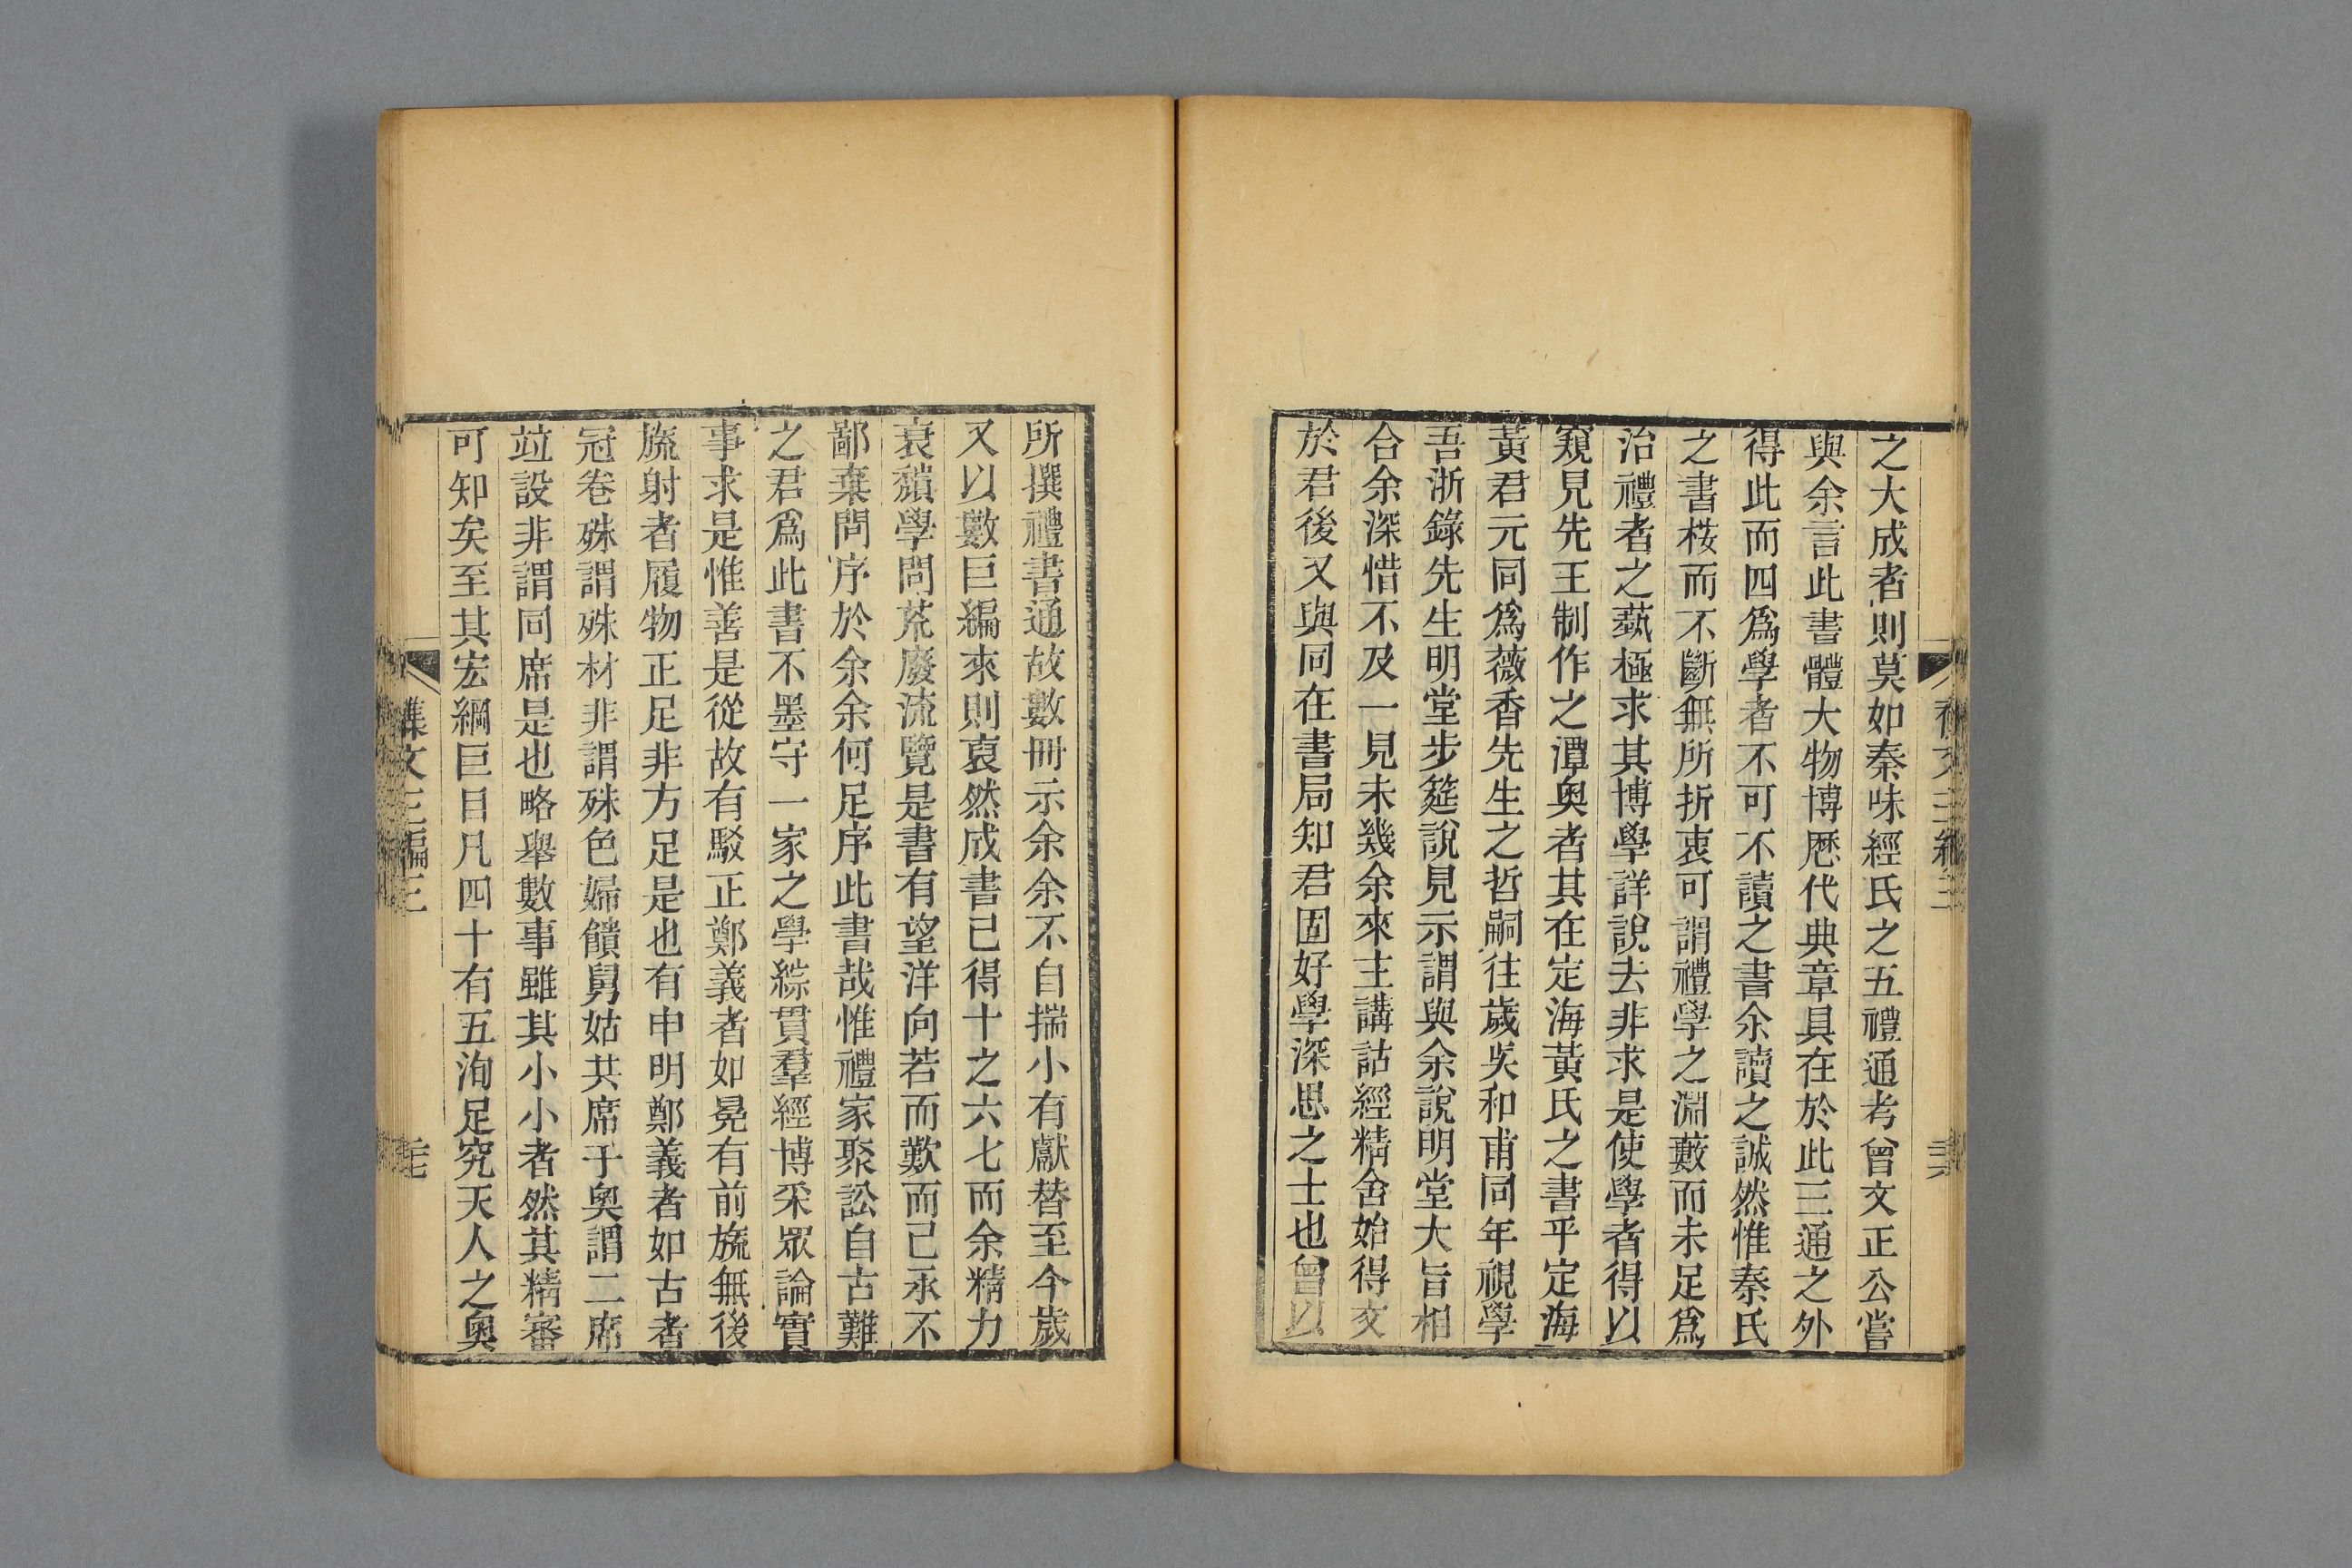 之大成者則莫如秦味經氏之五禮通考曾文正公嘗
與余言此書體大物博歷代典章具在於此三通之外
得此而四爲學者不可不讀之書余讀之誠然惟秦氏
之書桉而不斷無所折衷可謂禮學之淵藪而未足爲
治禮者之藝極求其博學詳說去非求是使學者得以
窺見先王制作之潭奧者其在定海黃氏之書乎定海
黃君元同爲薇香先生之哲嗣往歲吳和甫同年視學
吾浙錄先生明堂步筵說見示謂與余說明堂大旨相
合余深惜不及一見未幾余來主講詁經精舍始得交
於君後又與同在書局知君固好學深思之士也曾以
所撰禮書通故數冊示余余不自揣小有獻替至今歲
又以數巨編來則裒然成書已得十之六七而余精力
衰穨學問荒廢流覽是書有望洋向若而歎而已承不
鄙棄問序於余余何足序此書哉惟禮家聚訟自古難
之君爲此書不墨守一家之學綜貫羣經博采眾論實
事求是惟善是從故有駁正鄭義者如冕有前旒無後
旒射者履物正足非方足是也有申明鄭義者如古者
冠卷殊謂殊材非謂殊色婦饋舅姑共席于奧謂二席
竝設非謂同席是也略舉數事雖其小小者然其精審
可知矣至其宏綱巨目凡四十有五洵足究天人之奧
集文三編三